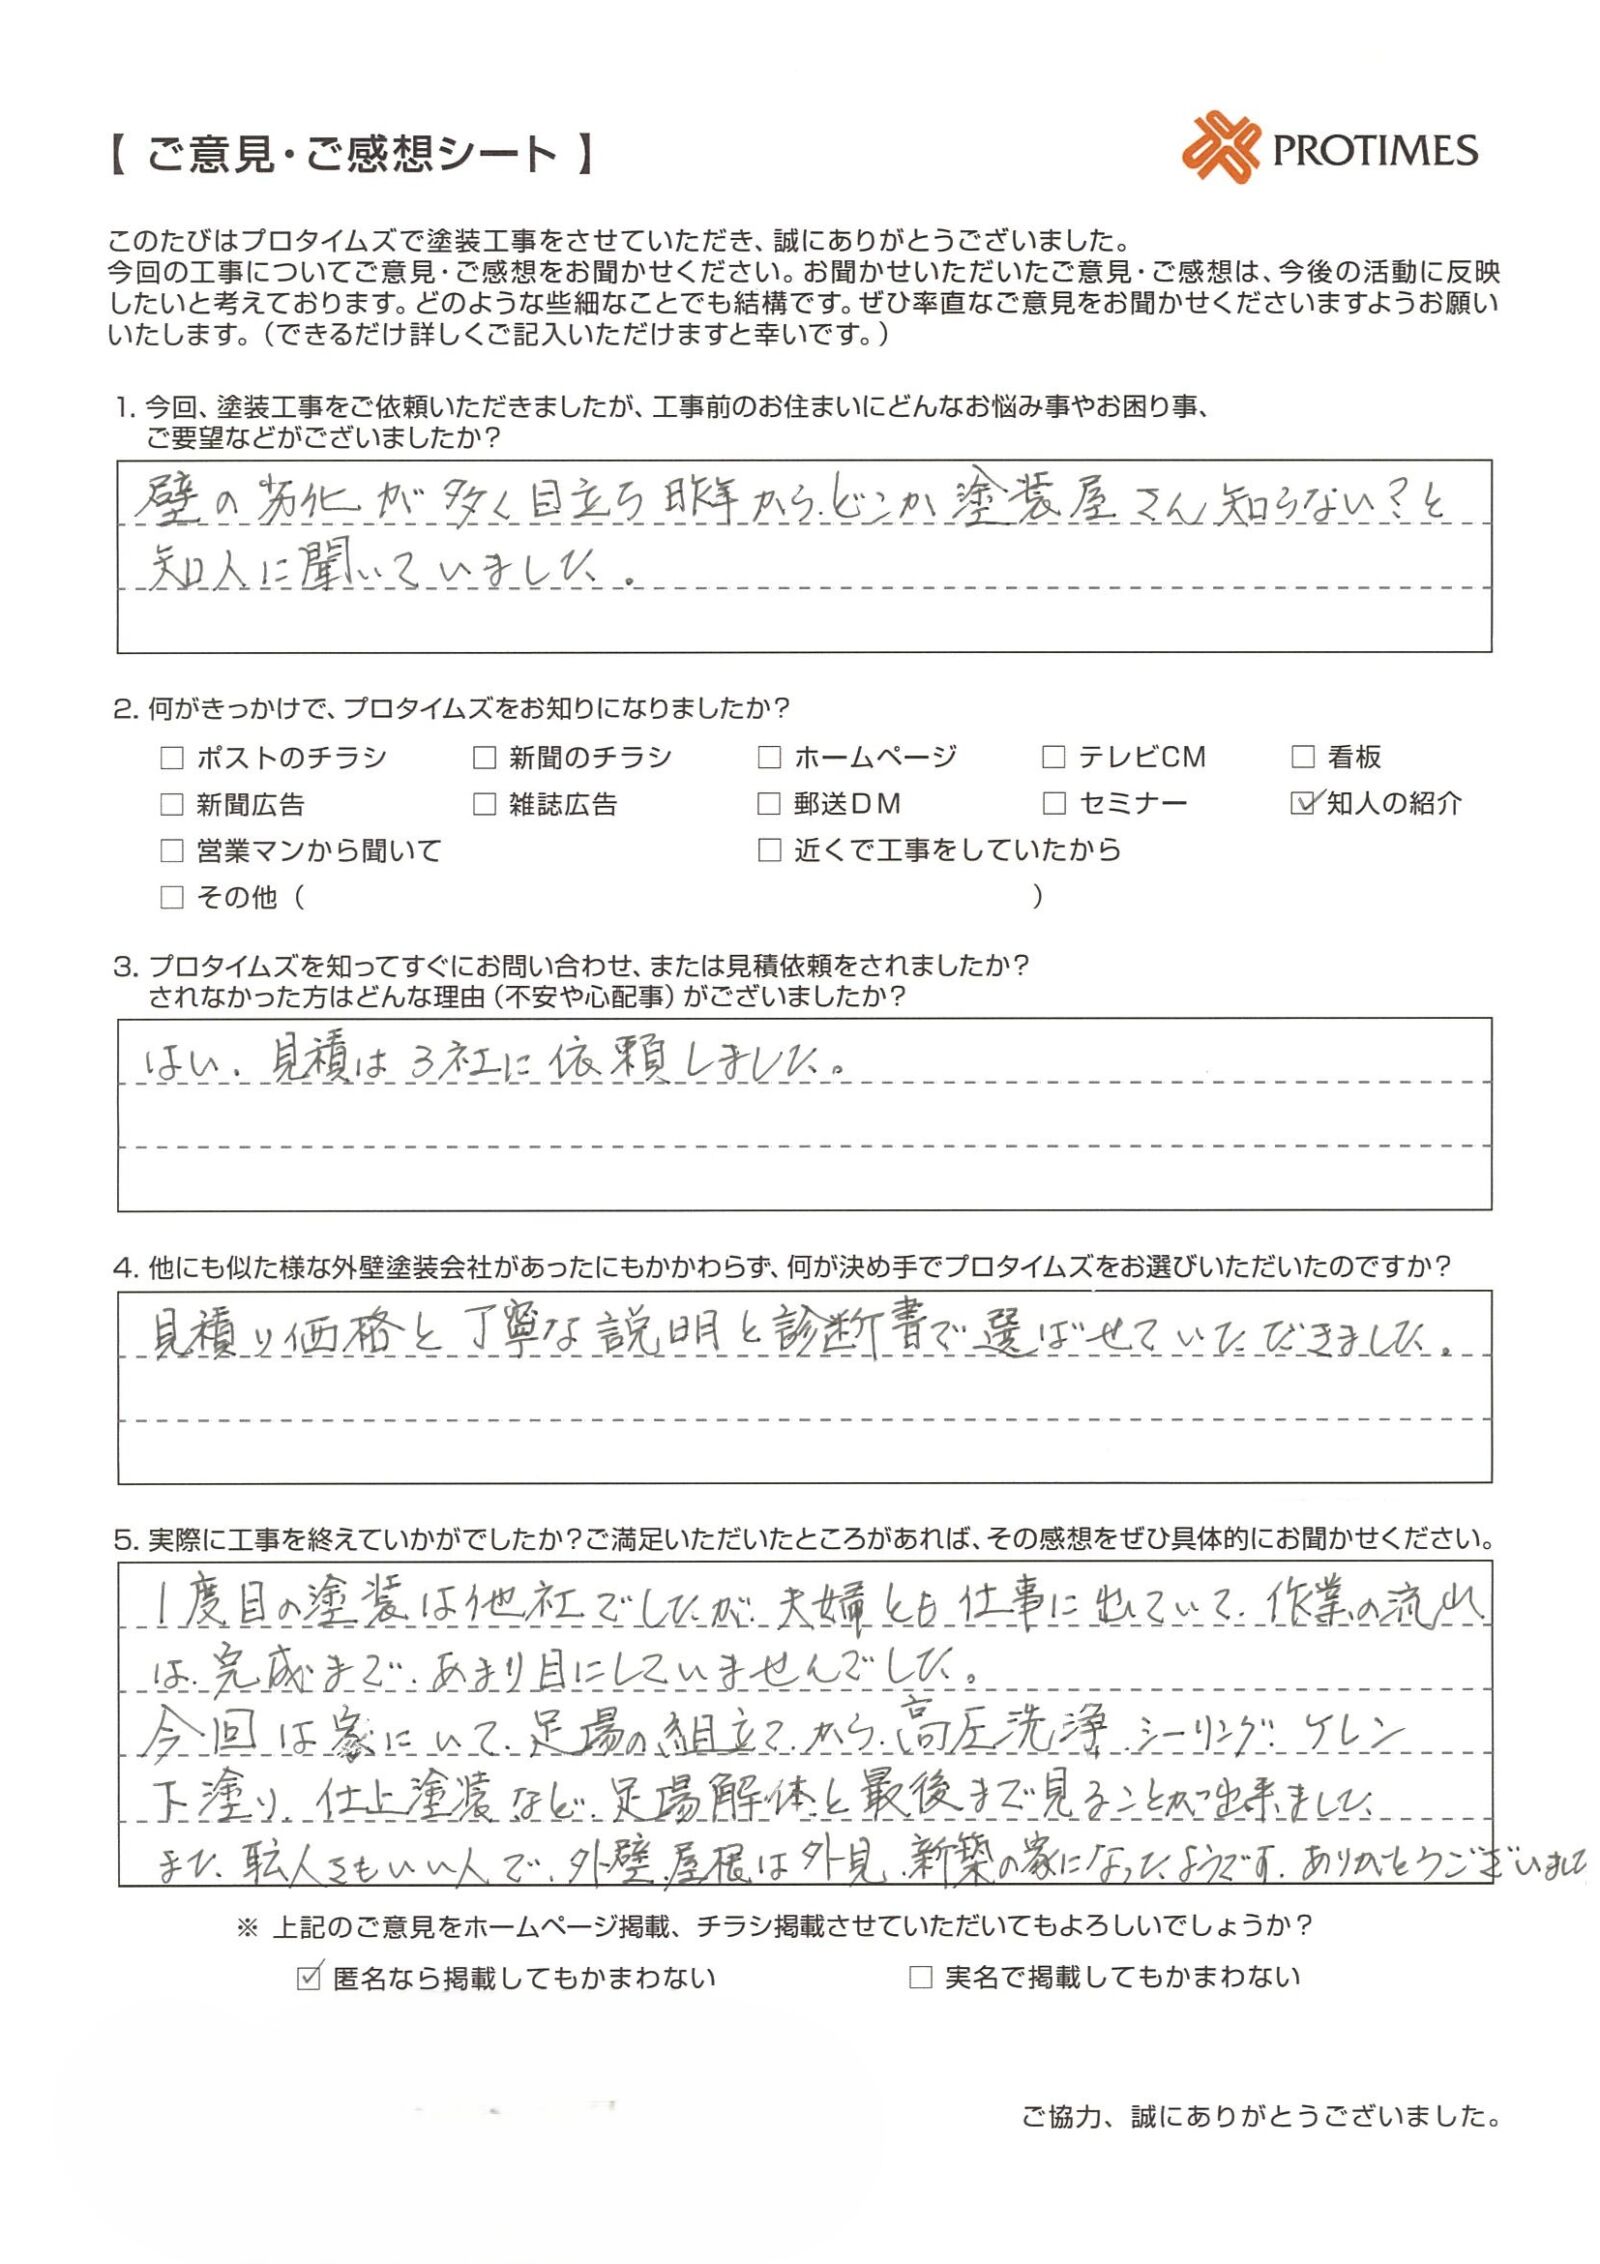 【 ご意見・ご感想シート 】
PROTIMES
このたびはプロタイムズで塗装工事をさせていただき、誠にありがとうございました。
今回の工事についてご意見・ご感想をお聞かせください。お聞かせいただいたご意見・ご感想は、今後の活動に反映
したいと考えております。どのような些細なことでも結構です。ぜひ率直なご意見をお聞かせくださいますようお願い
いたします。（できるだけ詳しくご記入いただけますと幸いです。）
1. 今回、塗装工事をご依頼いただきましたが、工事前のお住まいにどんなお悩み事やお困り事、
ご要望などがございましたか？
壁の劣化が多く目立ち昨年から、どこか塗装屋さん知らない？と
知人に聞いていました。
2. 何がきっかけで、プロタイムズをお知りになりましたか？
□ ポストのチラシ □ 新聞のチラシ □ ホームページ □ テレビCM □ 看板
□ 新聞広告 □ 雑誌広告 □ 郵送DM □ セミナー ☑ 知人の紹介
□ 営業マンから聞いて □ 近くで工事をしていたから
□ その他（ ）
3. プロタイムズを知ってすぐにお問い合わせ、または見積依頼をされましたか？
されなかった方はどんな理由（不安や心配事）がございましたか？
はい、見積は3社に依頼しました。
4. 他にも似た様な外壁塗装会社があったにもかかわらず、何が決め手でプロタイムズをお選びいただいたのですか？
見積り価格と丁寧な説明と診断書で選ばせていただきました。
5. 実際に工事を終えていかがでしたか？ご満足いただいたところがあれば、その感想をぜひ具体的にお聞かせください。
1度目の塗装は他社でしたが、夫婦とも仕事に出ていて、作業の流れ
は、完成まで、あまり目にしていませんでした。
今回は家にいて、足場の組立てから、高圧洗浄、シーリング、ケレン
下塗り、仕上塗装など、足場解体と最後まで見ることが出来ました、
また、職人さもいい人で、外壁、屋根は外見、新築の家になったようです、ありがとうございました
※ 上記のご意見をホームページ掲載、チラシ掲載させていただいてもよろしいでしょうか？
☑ 匿名なら掲載してもかまわない □ 実名で掲載してもかまわない
ご協力、誠にありがとうございました。